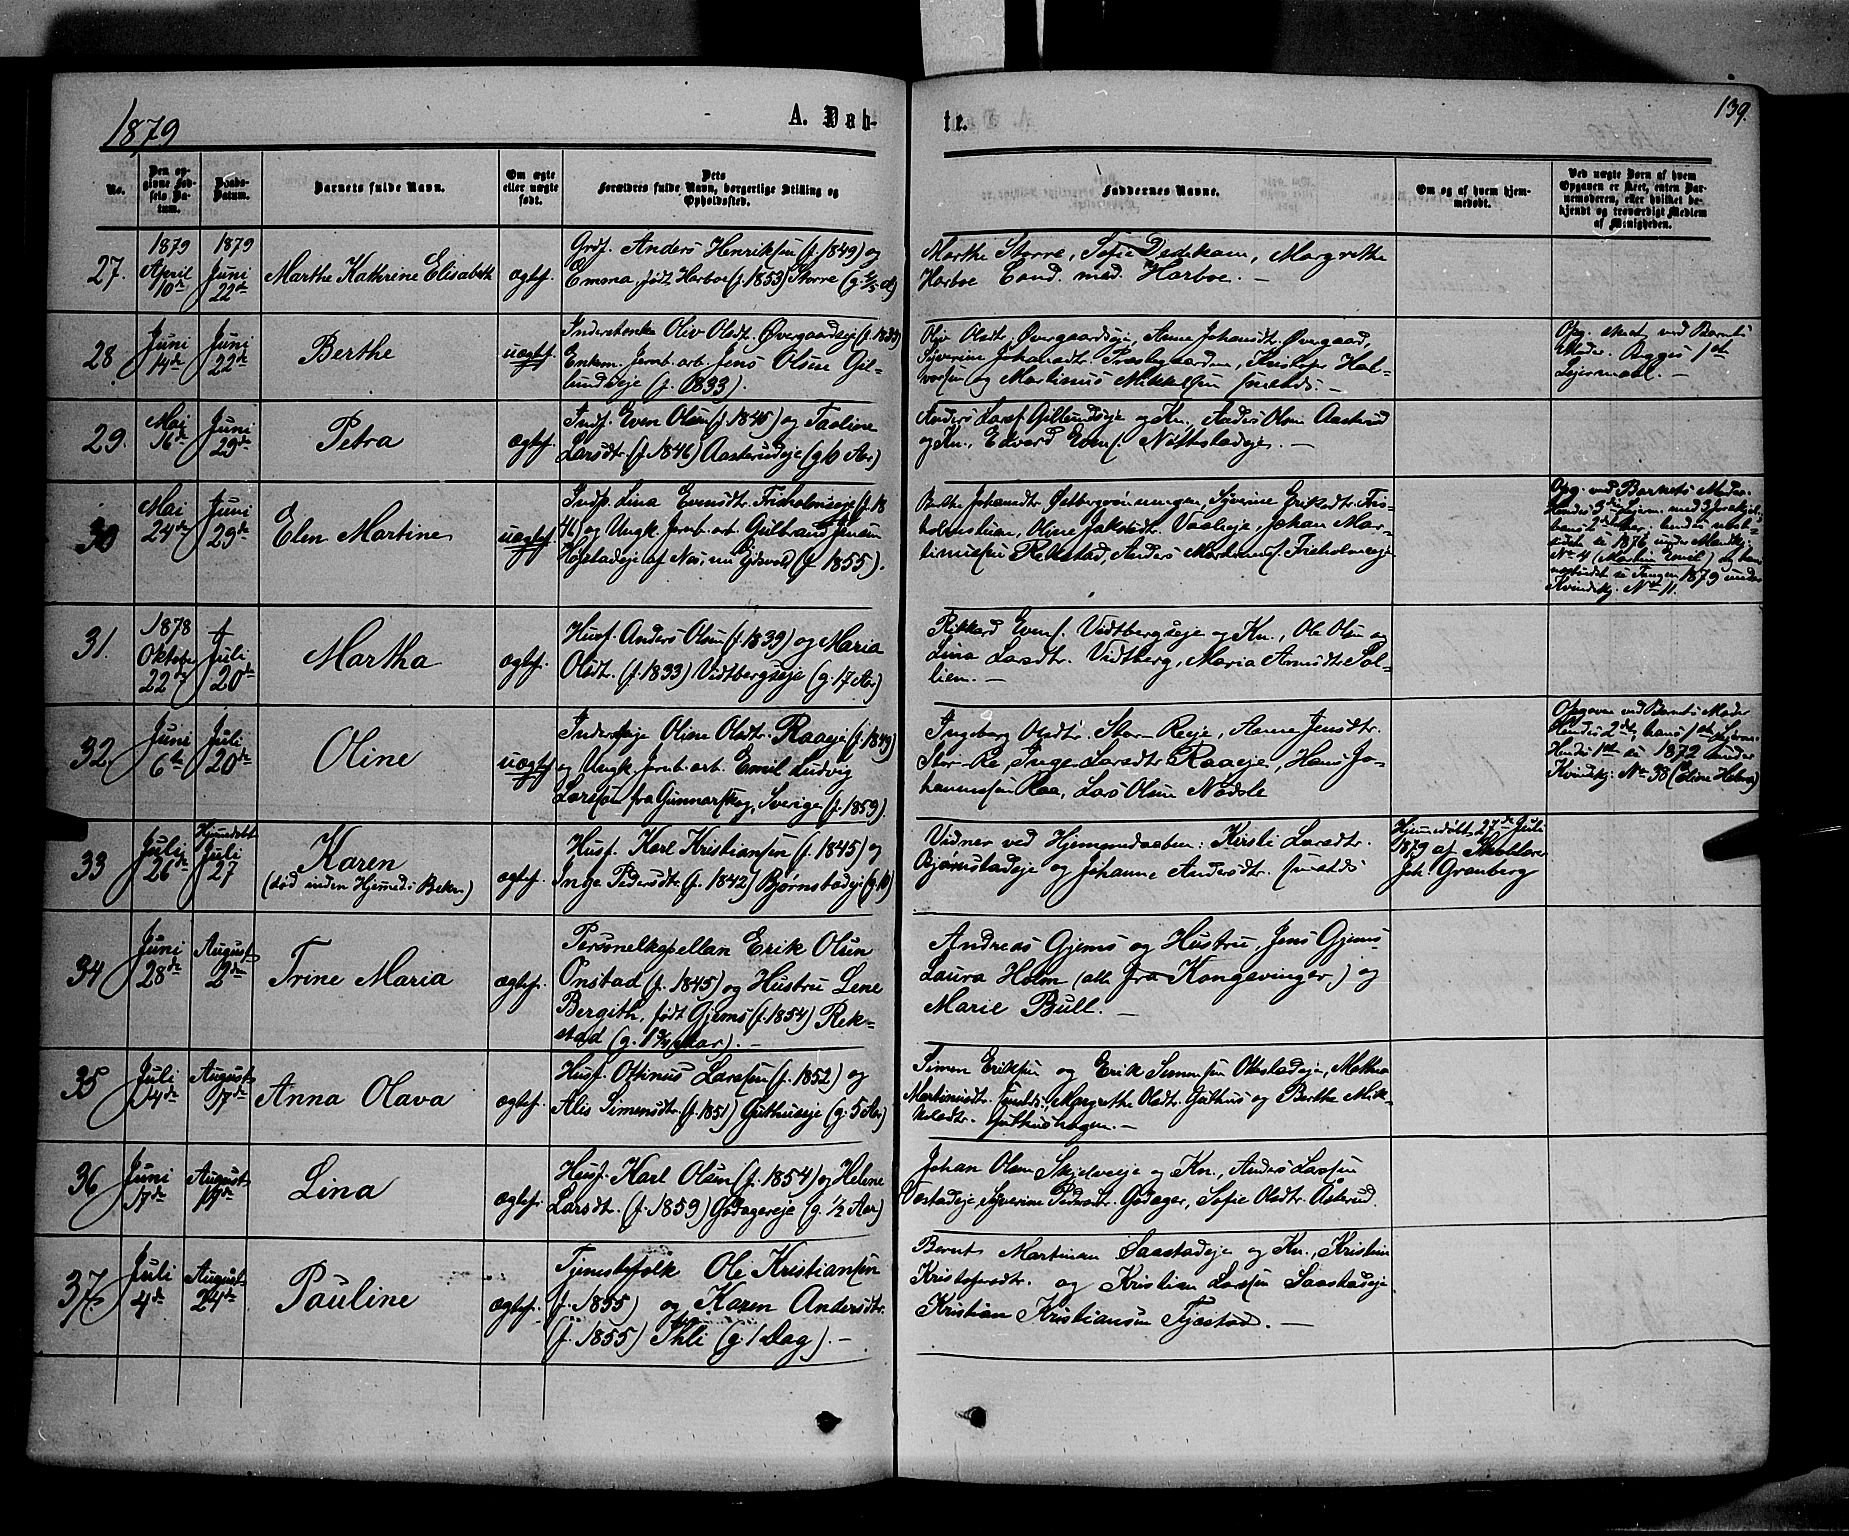 1879
A. Døb-
te.
139.
No.
Den opgivne Fødsels Datum.
Daabs-Datum.
Barnets fulde Navn.
Om ægte eller uægte født.
Dets Forældres fulde Navn, borgerlige Stilling og Opholdssted.
Faddernes Navne.
Om og af hvem hjemmedøbt.
Ved uægte Børn af hvem Opgaven er skeet, enten Barnemoderen, eller hvilket bekjendt og troværdigt Medlem af Menigheden.
27.
1879 April 10de
1879 Juni 22de
Marthe Kathrine Elisabeth
ægtef.
Grdf. Anders Henriksen (f. 1849) og
Emma, født Harboe (f. 1853) Storre
Marthe Storre, Sofie Dedekam, Margrethe
Harboe Cand. med. Harboe. -
28.
Juni 14de
Juni 22de
Berthe
uægtef.
Inderstenke Oliv Olsdt. Øvergaardseje
Enkem. Jernb. arb. Jens Olsen Gil-
lundseje (f. 1833).
Oliv Olsdt. Øvergaardseje, Anne Johansdt. Øvergaard,
Syverine Johansdtr. Præstegaarden, Kristofer Hal-
vorsen og Martinus Mikkelsen
Opg. skeet ved Barnets
Moder. Begges 1st
Leiermaal. -
29.
Mai 16de
Juni 29de
Petra
ægtef.
Indf. Even Olsen (f. 1845) og Paoline
Larsdtr. (f. 1846) Aasterudeje (g. 10 Aar)
Anders Larsf. Gillundseje og Kn., Anders Olsen Aasterud
og Kn., Edvard Evens. Nøttestadeje. -
30
Mai 24de
Juni 29de
Elen Martine
uægtef.
Indp. Lina Evensdtr. Friholmseje (f. 18
og Ungk. Jernb. arb. Gulbrand Jensen
af Nes, nu Eidsvold (f. 1855).
Berthe Johansdtr. Syverine Eriksdtr. Fris-
Oline Jakobsdtr. Vaaleje, Johan Mar-
tiniusen Rekstad, Anders Mortensen Frisholmseje
Opg. ved Barnets Moder.
Hendes 3die Leierm. med 3 forskjel.
hans 2det
1876 under Mandkj.
No 4 (Martin Emil) og hans
Tangen 1879 under
Kvindekj. No 11.
31.
1878 Oktober 22de
Juli 20de
Martha
ægtef.
Husf. Anders Olsen (f. 1839) og Maria
Olsdtr. (f. 1833) Vidtbergseje (g. 17 Aar)
Rikkard Evens. Vidtbergseje og Kn., Ole Olsen og
Lina Larsdtr. Vidtberg, Maria Arnesdtr. Sol-
lien. -
32.
Juni 6te
Juli 20de
Oline
uægtef.
Inderstpige Oline Olsdtr. Raaeje (f. 1849)
og Ungk. Jernb. arb. Emil Ludvig
Larsson fra Gunnarskog, Sverige (f. 1859).
Ingeborg Olsdtr. Stor-Reeje, Anne Jensdtr.
Stor-Re, Inge Larsdtr. Raaeje, Hans Jo-
hannessen Raa, Lars Olsen Nødsle
Opgaven ved Barnets Moder
Hendes 2det, hans 1st Leierm.
Hendes 1st 1872 under
Kvindekj. No 38
33
Juli 26de
Hjemmedøbt Juli 27
Karen
(død inden Hjemmed. Bekr.)
ægtef.
Husf. Karl Kristiansen (f. 1845) og
Inge Pedersdtr. (f. 1842) Bjørnstadeje (g. 10)
Vidner ved Hjemmedaaben: Kirsti Larsdtr.
Bjørnstadeje og Johanne Andersdtr.
Hjemmedøbt 27de Juli
1879 af Skolelærer
Joh. Granberg
34
Juni 28de
August 2den
Trine Maria
ægtef.
Personelkapellan Erik Olsen
Onstad (f. 1845) og Hustru Lene
Bergith, født Gjems (f. 1854) Rek-
stad (g. 1 3/4 Aar). -
Andreas Gjems og Hustru, Jens Gjems
Laura Holm (alle fra Kongsvinger) og
Marie Bull. -
35
Juli 14de
August 17de
Anna Olava
ægtef.
Husf. Ottinus Larssen (f. 1852) og
Alis Simensdtr. (f. 1851) Guthuseje (g. 5 Aar)
Simen Eriksen og Erik Simensen Ottestadeje, Mathea
Martinusdtr. Margrethe Olsdtr. Guthus og Berthe Mik-
kelsdtr. Guthushagen. -
36
Juni 17de
August 17de
Lina
ægtef.
Husf. Karl Olsen (f. 1854) og Helene
Larsdtr. (f. 1859) Godagereje (g. 1/2 Aar)
Johan Olsen Skjelveeje og Kn., Anders Larssen
Syverine Pedersdtr. Godager, Sofie Olsdtr. Åsterud.
37
Juli 4de
August 24de
Pauline
ægtef.
Tjenestefolk Ole Kristiansen
(f. 1855) og Karen Andersdtr.
(f. 1855) Ihle (g. 1 Dag). -
Bernt Martinsen Saastadeje og Kn., Kristine
Kristofersdtr. og Kristian Larssen Saastadeje
Kristian Kristiansen Fjæstad. -